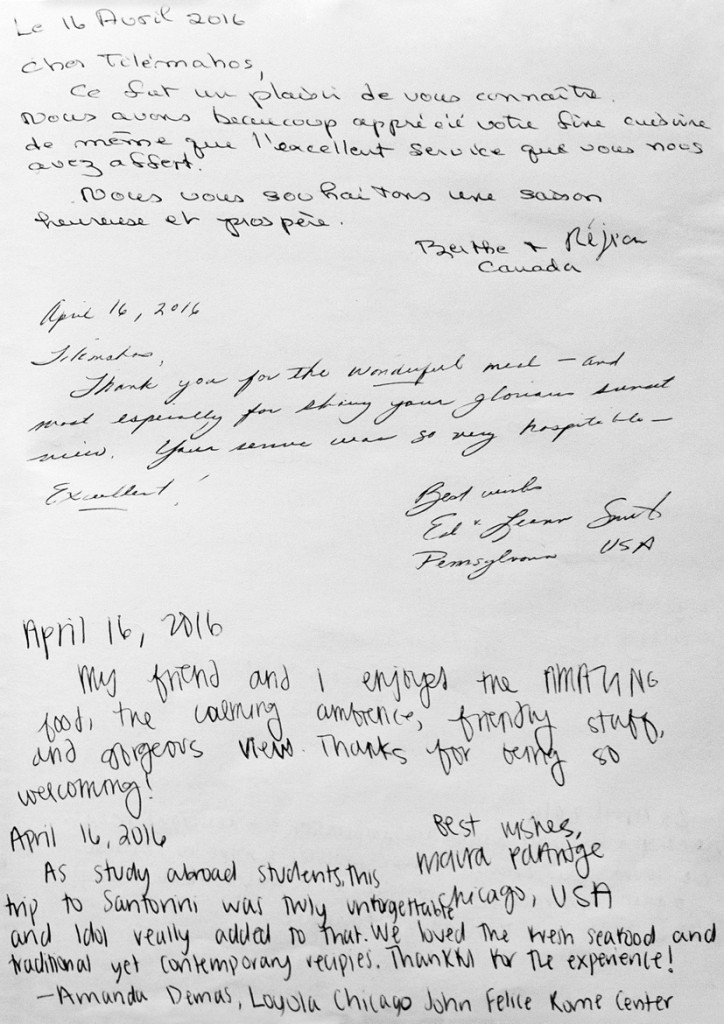 Le 16 Avril 2016
Cher Tilémahos,
Ce fut un plaisir de vous connaître.
Nous avons beaucoup apprécié votre fine cuisine
de même que l'excellent service que vous nous
avez offert.
Nous vous souhaitons une saison
heureuse et prospère.
Berthe + Réjean
Canada
April 16, 2016
Tilemahos,
Thank you for the wonderful meal – and
most especially for sharing your glorious sunset
view. Your service was so very hospitable –
Excellent!
Best wishes
Ed + Leann
Pennsylvania USA
April 16, 2016
My friend and I enjoyed the AMAZING
food, the calming ambience, friendly staff,
and gorgeous view. Thanks for being so
welcoming!
Best wishes,
Maura Partridge
Chicago, USA
April 16, 2016
As study abroad students, this
trip to Santorini was truly unforgettable
and Idol really added to that. We loved the fresh seafood and
traditional yet contemporary recipies. Thankful for the experience!
–Amanda Demas, Loyola Chicago John Felice Rome Center